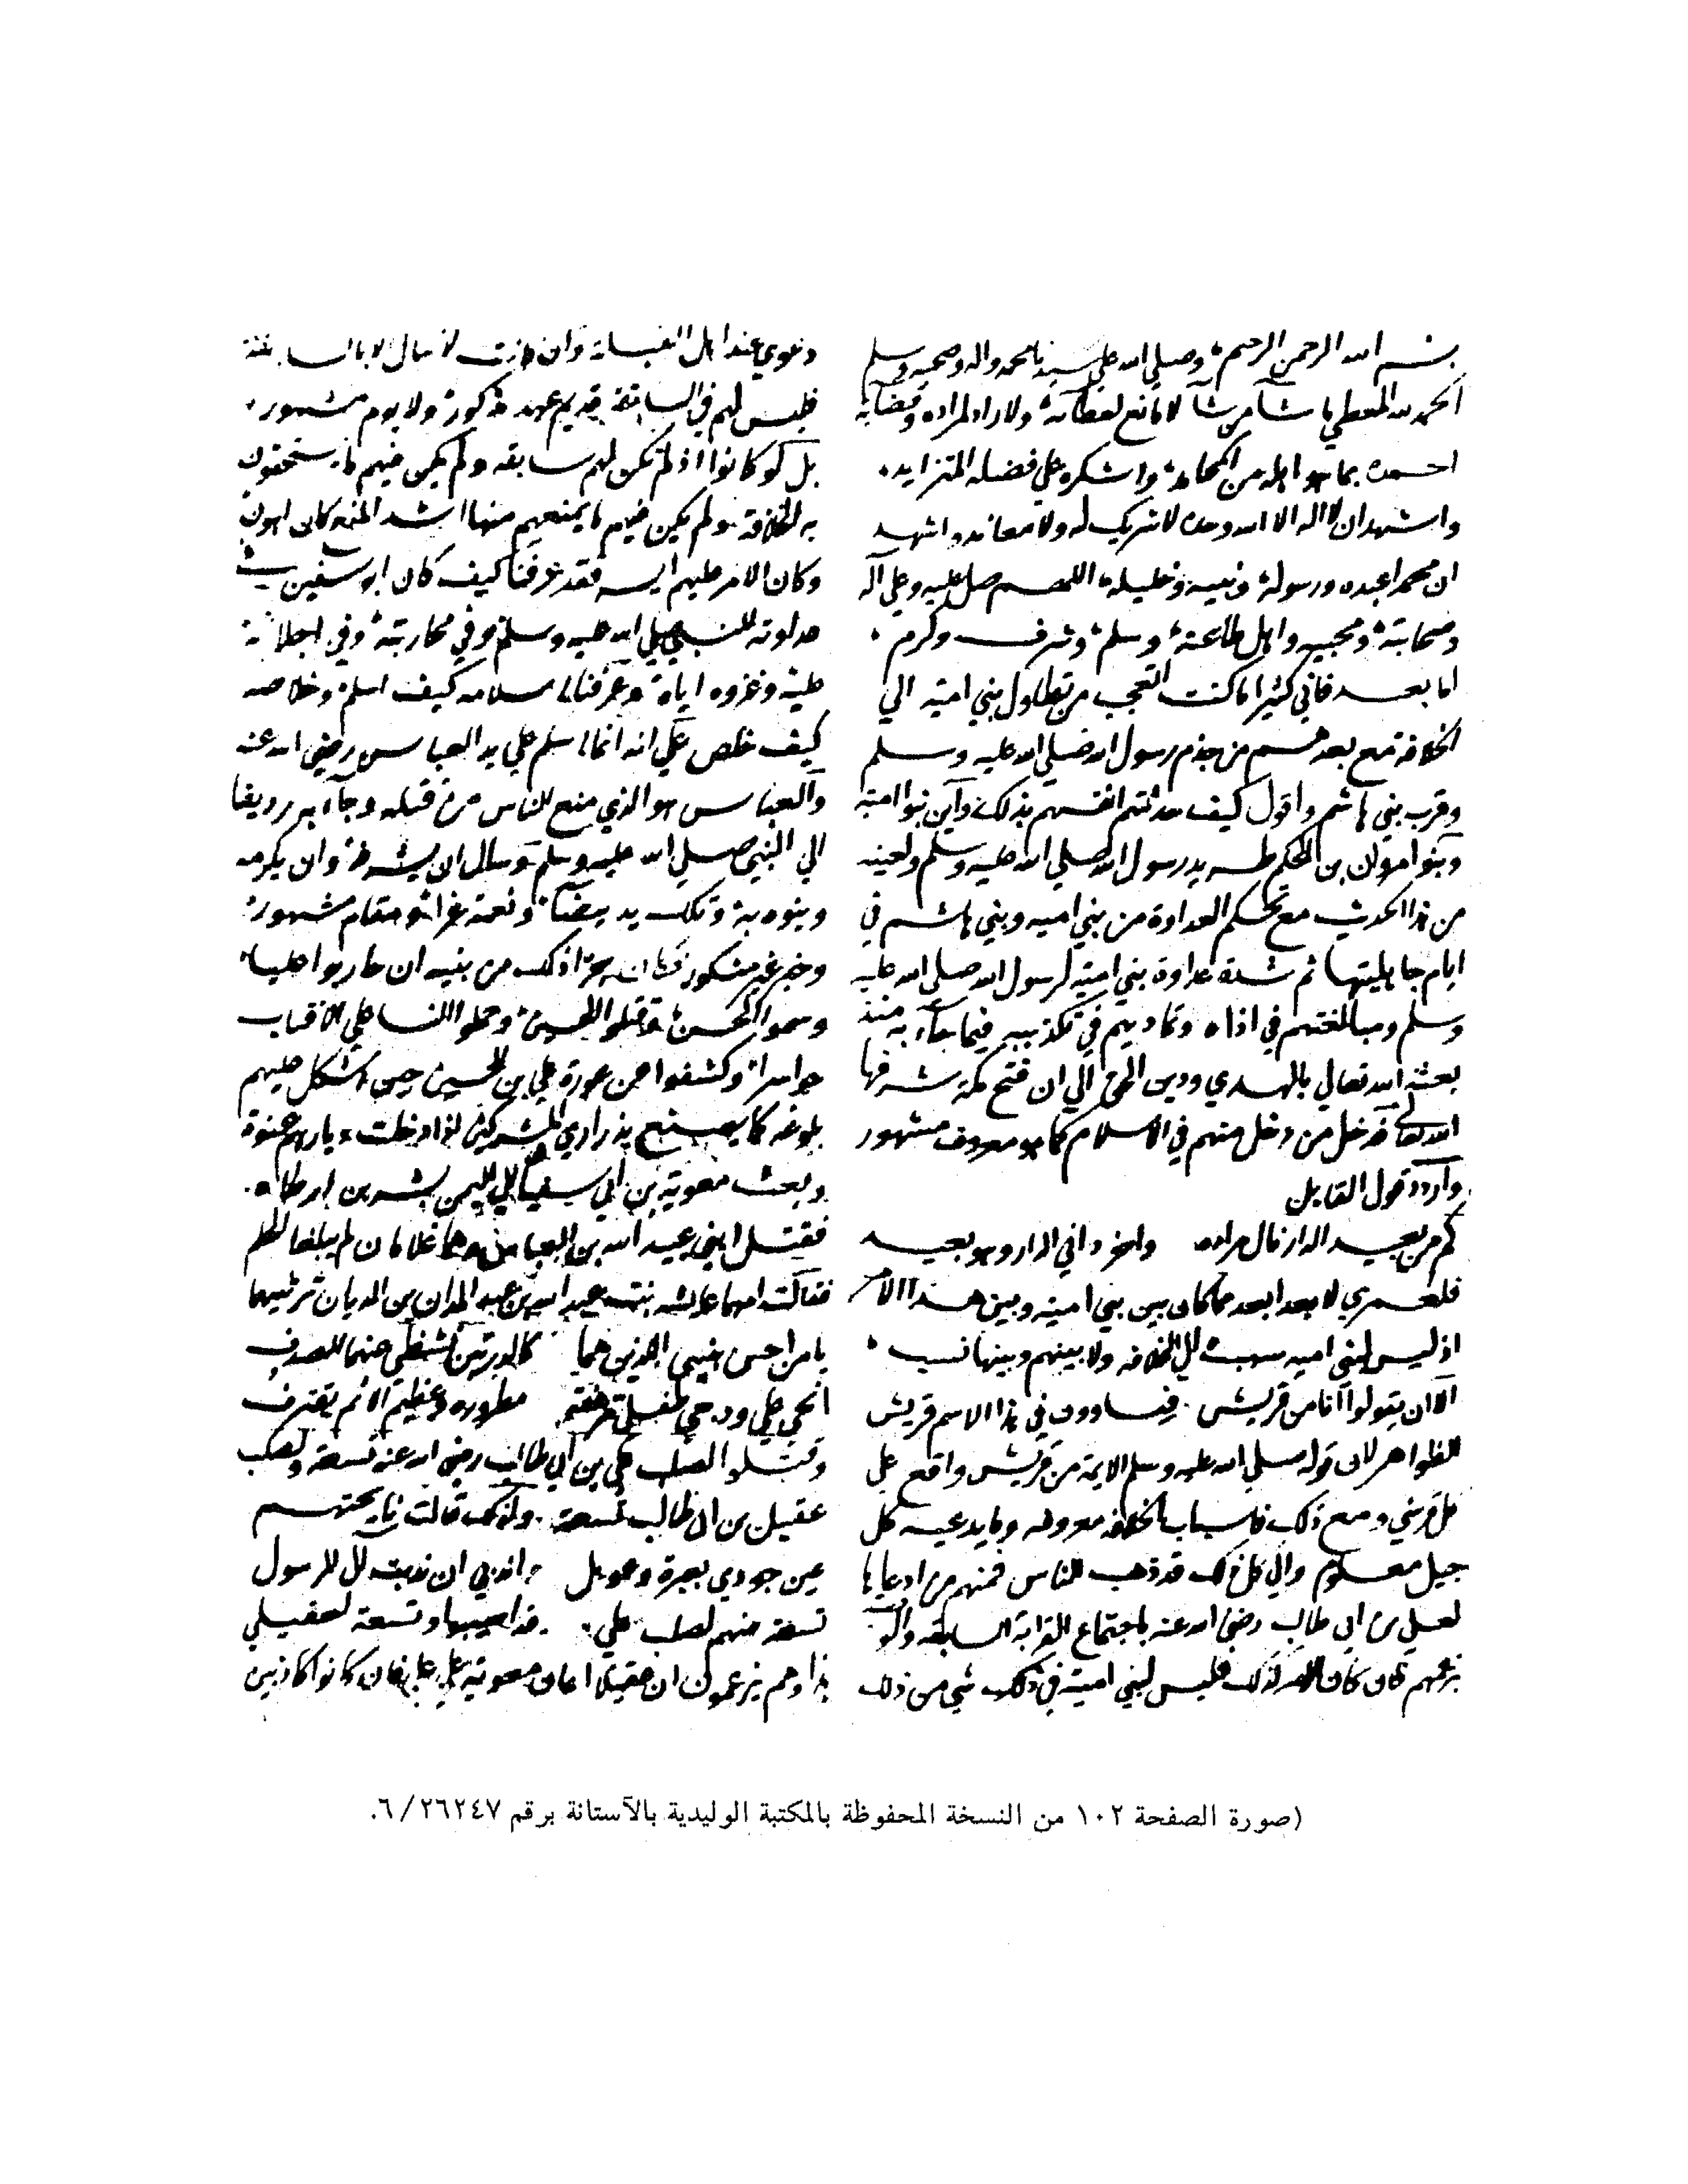 بسم الله الرحمن الرحيم وصلى الله على سيدنا محمد واله وصحبه وسلم
الحمد لله المعطي ما شآ من شآ لا مانع لعطائه ولا راد لمراده وقضايه
احمده بما هو اهله من المحامد واشكره علي فضله المتزايد
واشهد ان لا اله الا الله وحده لا شريك له ولا معاند واشهد
ان محمدا عبده ورسوله ونبيه وخليله اللهم صل عليه وعلى آله
وصحابته ومحبيه واهل طاعته وسلم وشرف وكرم
اما بعد فاني كثيرا ما كنت اتعجب من تطاول بني امية الي
الخلافة مع بعدهم من جذم رسول الله صلى الله عليه وسلم
وقرب بني هاشم واقول كيف حدثتهم انفسهم بذلك واين بنوا امية
وبنو مروان بن الحكم طريد رسول الله صلى الله عليه وسلم ولعينه
من هذا الحديث مع تحكم العداوة من بني اميه وبني هاشم في
ايام جاهليتها ثم شدة عداوة بني امية لرسول الله صلى الله عليه
وسلم ومبالغتهم في اذاه وتماديهم في تكذيبه فيما جآء به منذ
بعثه الله تعالي بالهدي ودين الحق الي ان فتح مكة شرفها
الله تعالى فدخل من دخل منهم في الاسلام كما هو معروف مشهور
واردد قول القايل
كم من بعيد الدار نال مراده واخر داني الدار وهو بعيد
فلعمري لا بعد ابعد مما كان بين بني امية وبين هذا الامر
اذ ليس لبني اميه سبب الى الخلافه ولا بينهم وبينها نسب
الا ان يقولوا انا من قريش فيساوون في هذا الاسم قريش
الظواهر لان قوله صلى الله عليه وسلم الايمة من قريش واقع علي
كل قرشي ومع ذلك فاسباب الخلافه معروفه وما يدعيه كل
جيل معلوم والي كل ذلك قد ذهب الناس فمنهم من ادعاها
لعلي بن ابي طالب رضي الله عنه باجتماع القرابة السابقه والو
بزعمهم فان كان الامر كذلك فليس لبني امية في ذلك شي من ذلك
دعوي عند اهل القبلة وان كانت لا تنال الا بالسابقة
فليس لهم في السابقة قديم عهد مذكور ولا يوم مشهور
بل لو كانوا اذ لم تكن لهم سابقه ولم يكن فيهم ما يستحقون
به الخلافة ولم يكن فيهم ما يمنعهم منها اشد المنع كان اهون
وكان الامر عليهم ايسر فقد عرفنا كيف كان ابو سفين في
عداوته للنبي صلى الله عليه وسلم وفي محاربته وفي اجلابه
عليه وغزوه اياه وعرفنا اسلامه كيف اسلم وخلاصه
كيف خلص علي انه انما اسلم علي يد العباس رضي الله عنه
والعباس هو الذي منع الناس من قتله وجآ به رديفا
الي النبي صلى الله عليه وسلم وسال ان يشرفه وان يكرمه
وينوه به وتلك يد بيضآ ونعمة غرا ومقام مشهور
وخبر غير منكور فكان جزا ذلك من بنيه ان حاربوا عليا
وسموا الحسن وقتلوا الحسين وحملوا النسا علي الاقتاب
حواسرا وكشفوا عن عورة علي بن الحسين حين اشكل عليهم
بلوغه كما يصنع بذراري المشركين اذا دخلت ديارهم عنوة
وبعث معوية بن ابي سفيان الي اليمن بسر بن ارطاه
فقتل ابني عبيد الله بن العباس وهما غلامان لم يبلغا الحلم
فقالت امهما عائشه بنت عبد الله بن عبد المدان بن الديان ترثيهما
يا من احس بنيي اللذين هما كالدرتين تشظى عنهما الصدف
انحي علي ودجي طفلي مرهفة مطروره وعظيم الاثم يقترف
وقتلوا لصلب علي بن ابي طالب رضي الله عنه تسعة ولصلب
عقيل بن ابي طالب تسعة ولذلك قالت نايحتهم
عين جودي بعبرة وعويل واندبي ان ندبت ال الرسول
تسعة منهم لصلب علي قد اصيبوا وتسعة لعقيل
هذا وهم يزعمون ان عقيلا اعان معوية علي علي فان كانوا كاذبين
(صورة الصفحة ١٠٢ من النسخة المحفوظة بالمكتبة الوليدية بالآستانة برقم ٢٦٢٤٧/٦.